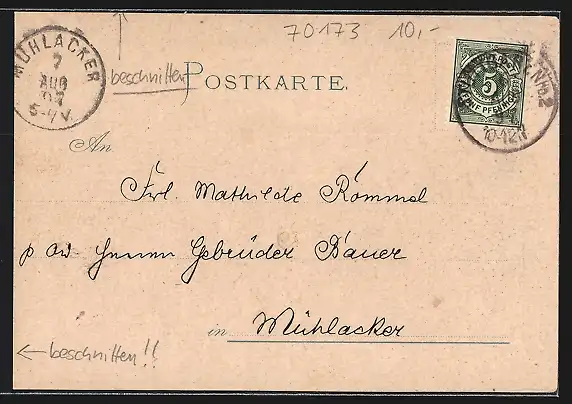 70173 10,-
MÜHLACKER
7
AUG
5-6V.
beschnitten
POSTKARTE.
5
FÜNF PFENNIG
10-12N
An
Frl. Mathilde Rommel
Herren Gebrüder Bauer
in Mühlacker
← beschnitten!!